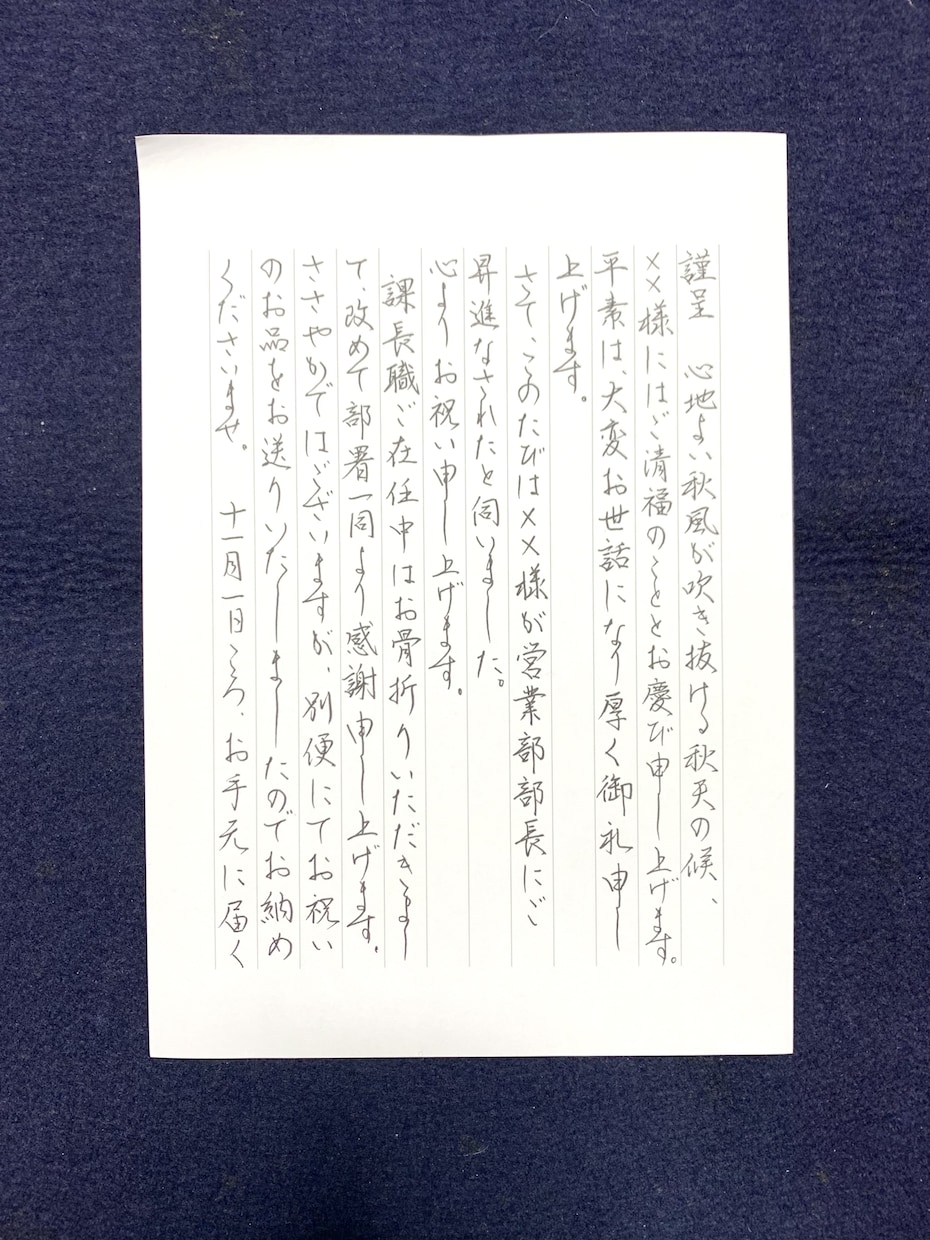 謹呈　心地よい秋風が吹き抜ける秋天の候、
××様にはご清福のこととお慶び申し上げます。
平素は、大変お世話になり厚く御礼申し
上げます。
さて、このたびは××様が営業部部長にご
昇進なされたと伺いました。
心よりお祝い申し上げます。
課長職ご在任中はお骨折りいただきまし
て、改めて部署一同より感謝申し上げます。
ささやかではございますが、別便にてお祝い
のお品をお送りいたしましたのでお納め
くださいませ。　十一月一日ころ、お手元に届く